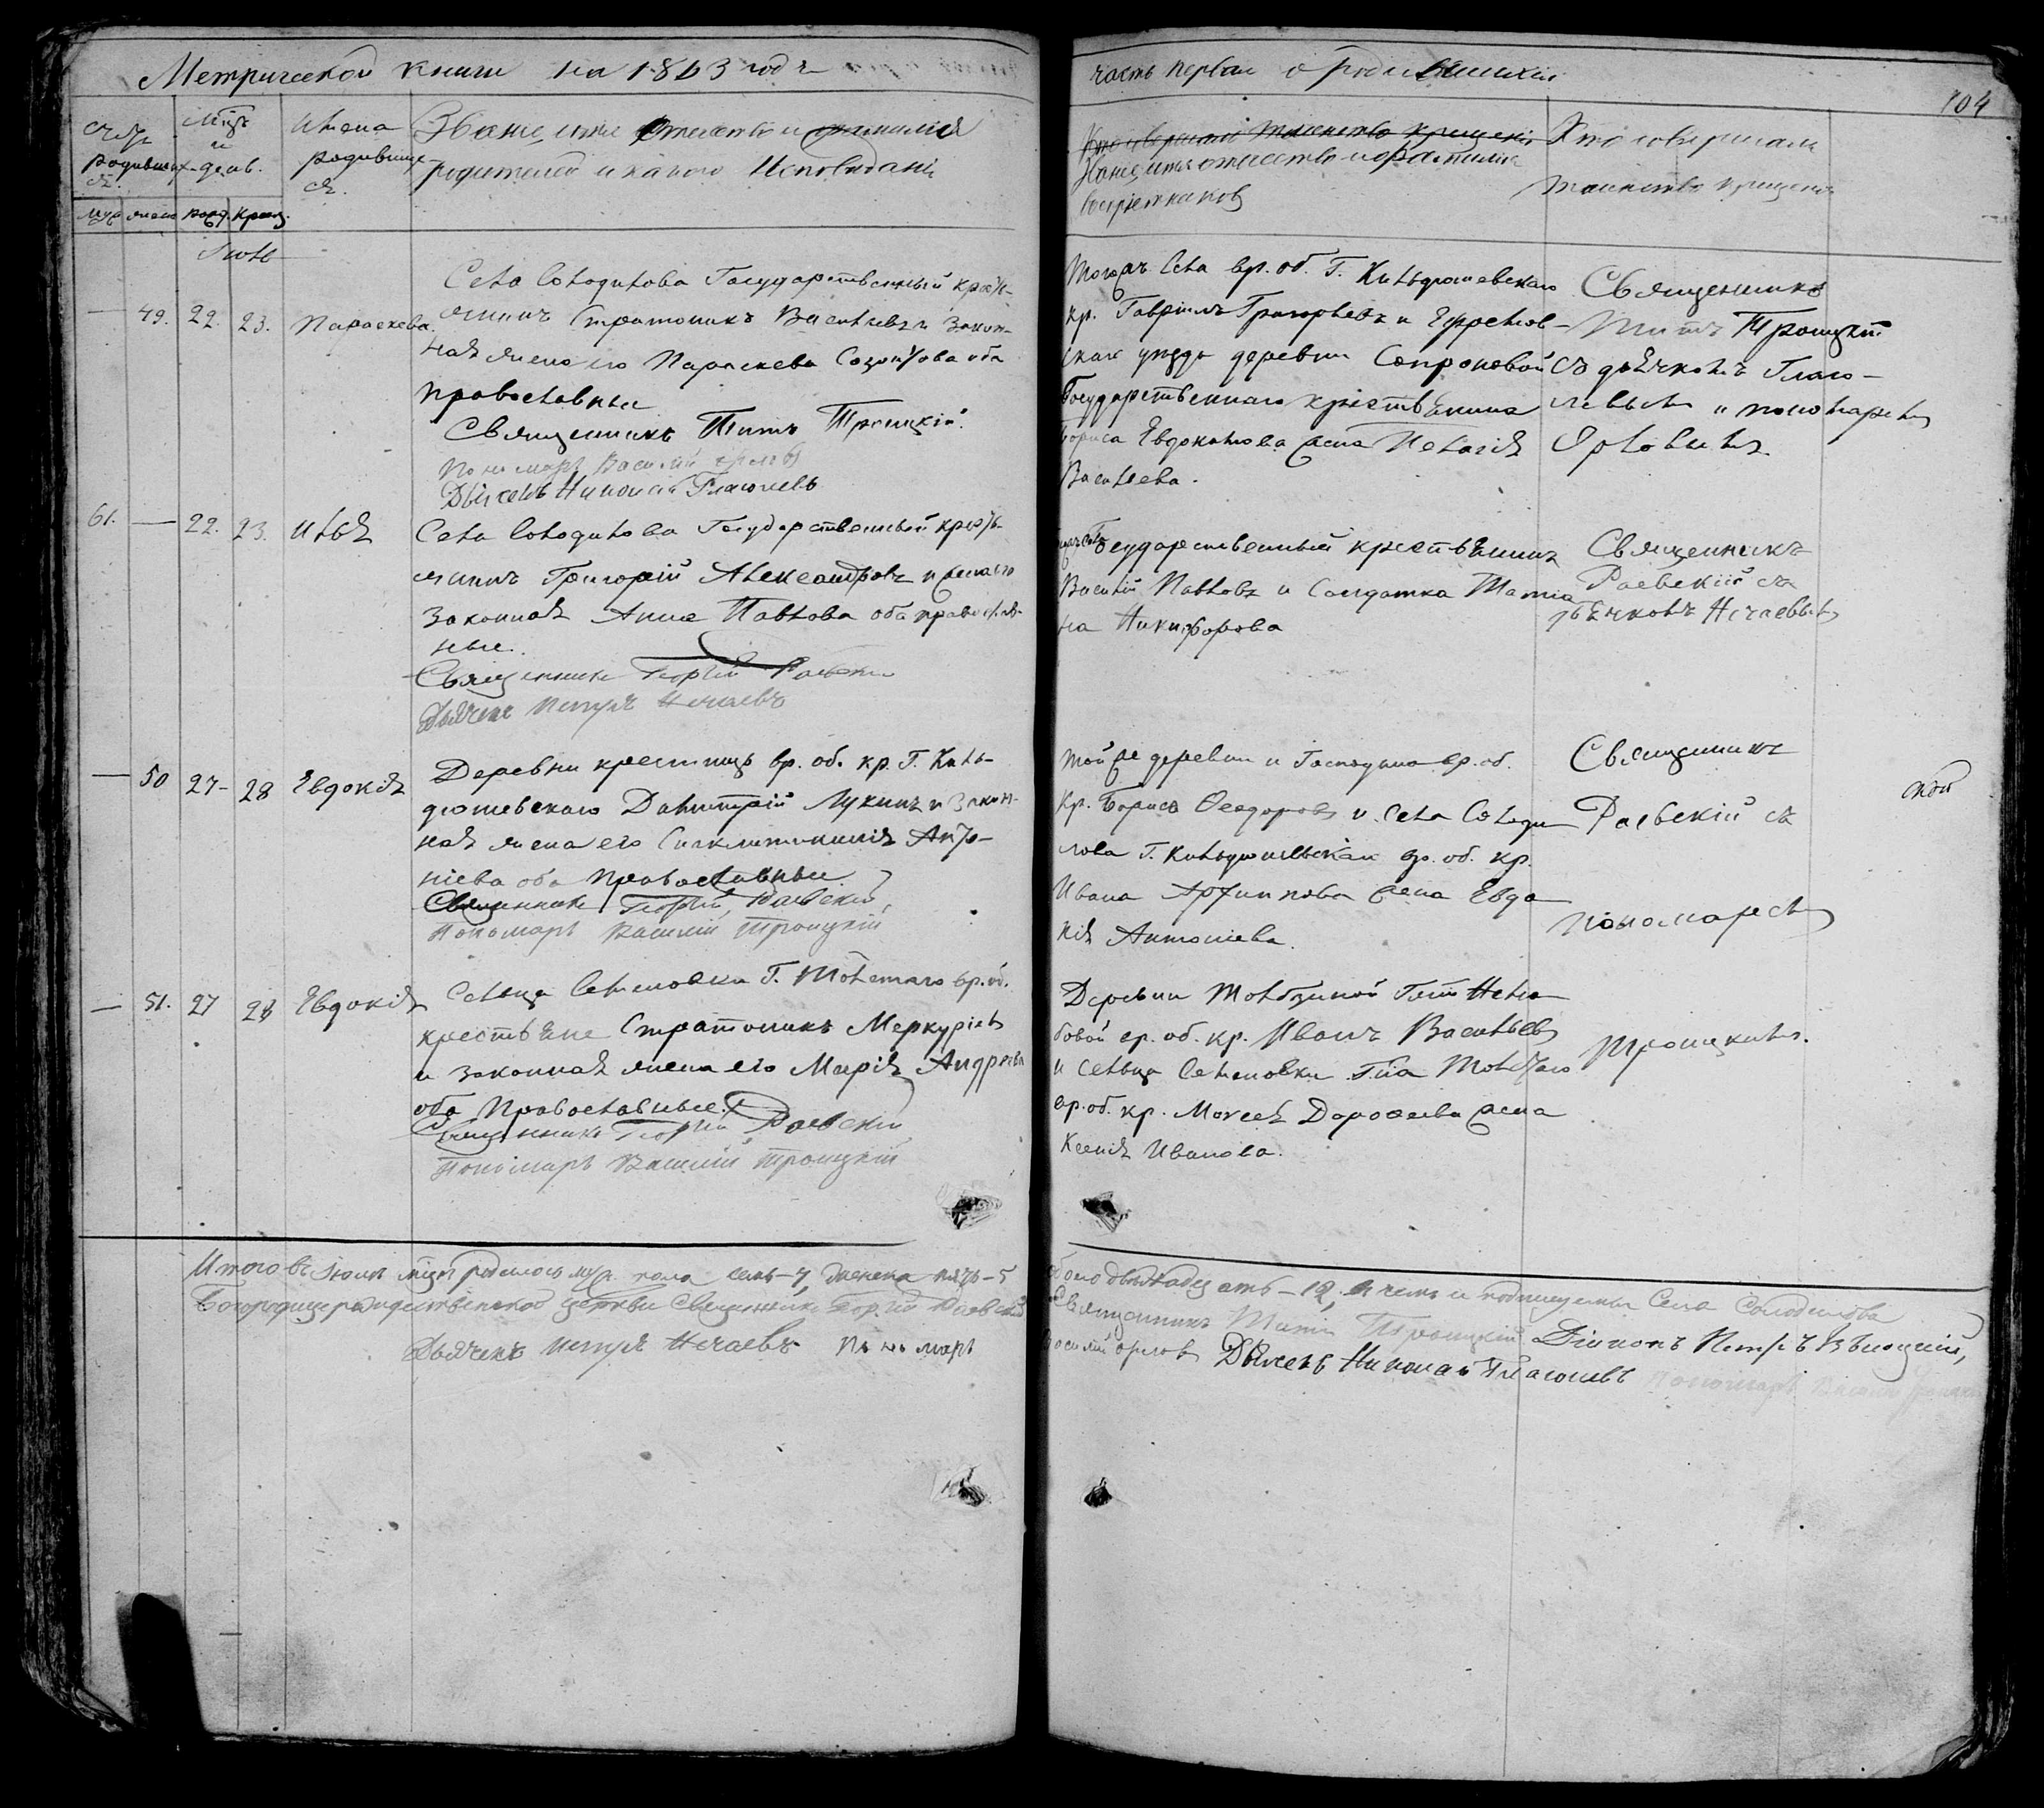 Метрической книги на 1863 годъ
часть первая о родившихся
104
Счетъ родившихся.
Мцъ и день.
Имена родившихся.
Званіе, имя отчество и фамилія
родителей и какого Исповеданія
Званіе, имя отчество и фамилія
воспріемниковъ
Кто совершалъ
таинство крещенія
муж. женс. рожд. крещ.
Іюль
— 49. 22. 23. Параскева.
Села Солодилова Государственный кресть-
янинъ Стратоникъ Васильевъ и закон-
ная жена его Параскева Созонтова оба
православные
Священникъ Титъ Троицкій.
Пономарь Василій Орловъ
Дьячекъ Николай Глаголевъ
Тогожъ села вр. об. Г. Кильдюшевскаго
кр. Гавріилъ Григорьевъ и Ефремов-
скаго уѣзда деревни Сопроновой
Государственнаго крестьянина
Бориса Евдокимова жена Пелагія
Васильева.
Священникъ
Титъ Троицкій
съ дьячкомъ Глаго-
левымъ и пономаремъ
Орловымъ.
61. — 22. 23. Илья
Села Солодилова Государственный кресть-
янинъ Григорій Александровъ и жена его
законная Анна Павлова оба православ-
ные.
Священникъ Георгій Раевскій
Дьячекъ Петръ Нечаевъ
Государственный крестьянинъ
Василій Павловъ и Солдатка Татіа
на Никифорова
Священникъ
Раевскій съ
дьячкомъ Нечаевымъ
— 50 27- 28 Евдокія
Деревни крестищъ вр. об. кр. Г. Киль-
дюшевскаго Димитрій Лукинъ и закон-
ная жена его Синклитикиія
оба православные
Священникъ Георгій Раевскій
Пономарь Василій Троицкій
той же деревни и Господина вр. об.
кр. Борисъ Ѳеодоровъ и села Солоди
лова Г. Кильдюшевскаго вр. об. кр.
Ивана Архиппова жена Евдо
кія Антоніева.
Священникъ
Раевскій съ
пономаремъ
— 51. 27 28 Евдокія
Сельца Семеновки Г. вр. об.
крестьяне Стратоникъ Меркуріевъ
и законная жена его Марія Андреева
оба Православные.
Священникъ Георгій Раевскій
Пономарь Василій Троицкій
Деревни
вр. об. кр. Иванъ Васильевъ
и сельца Семеновки
вр. об. кр. Моисея Дороѳеева жена
Ксенія Иванова.
Троицкимъ.
Итого въ Іюлѣ мцѣ родилось муж. пола семь-7, женска пять-5
обоего двѣнадцать-12, въ чемъ и подписуемся Села Солодилова
Богородицерождественской церкви Священникъ Георгій Раевскій
Священникъ Титъ Троицкій Діаконъ Петръ
Дьячекъ Петръ Нечаевъ Пономарь
Василій Орловъ Дьячекъ Николай Глаголевъ Пономарь Василій Троицкій